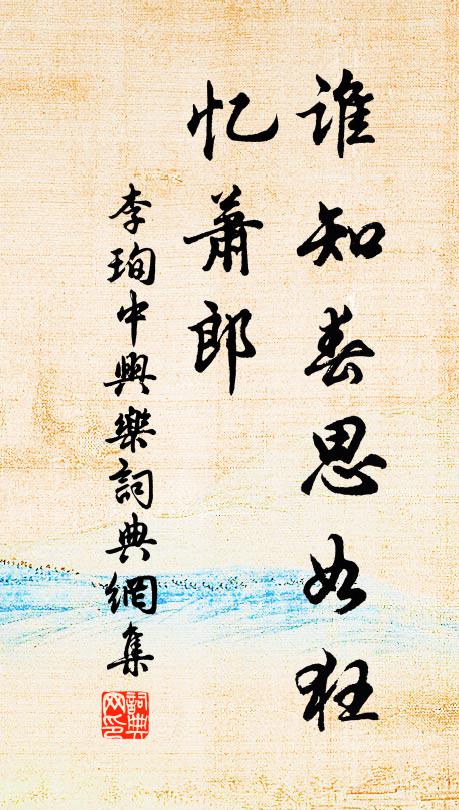 谁知春思如狂
忆萧郎
李珣中興樂詞典網集
詞典網印